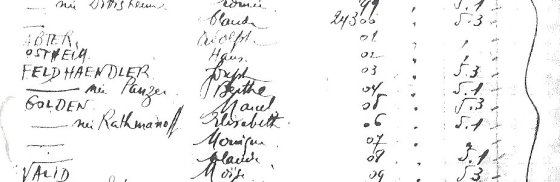 — née Dottesheim 99 " 5.1
Claude 24300 " 5.3
ADLER Adolph 01 "
OSTHEIM Hans 02 "
FELDHAENDLER Joseph 03 " 5.3
— née Panzer Berthe 04 " 5.1
GOLDEN Marcel 05 " 5.3
— née Rathmanoff Elisabeth 06 " 5.1
— Monique 07 "
— Claude 08 " 5.1
VALID Moïse 09 " 5.3